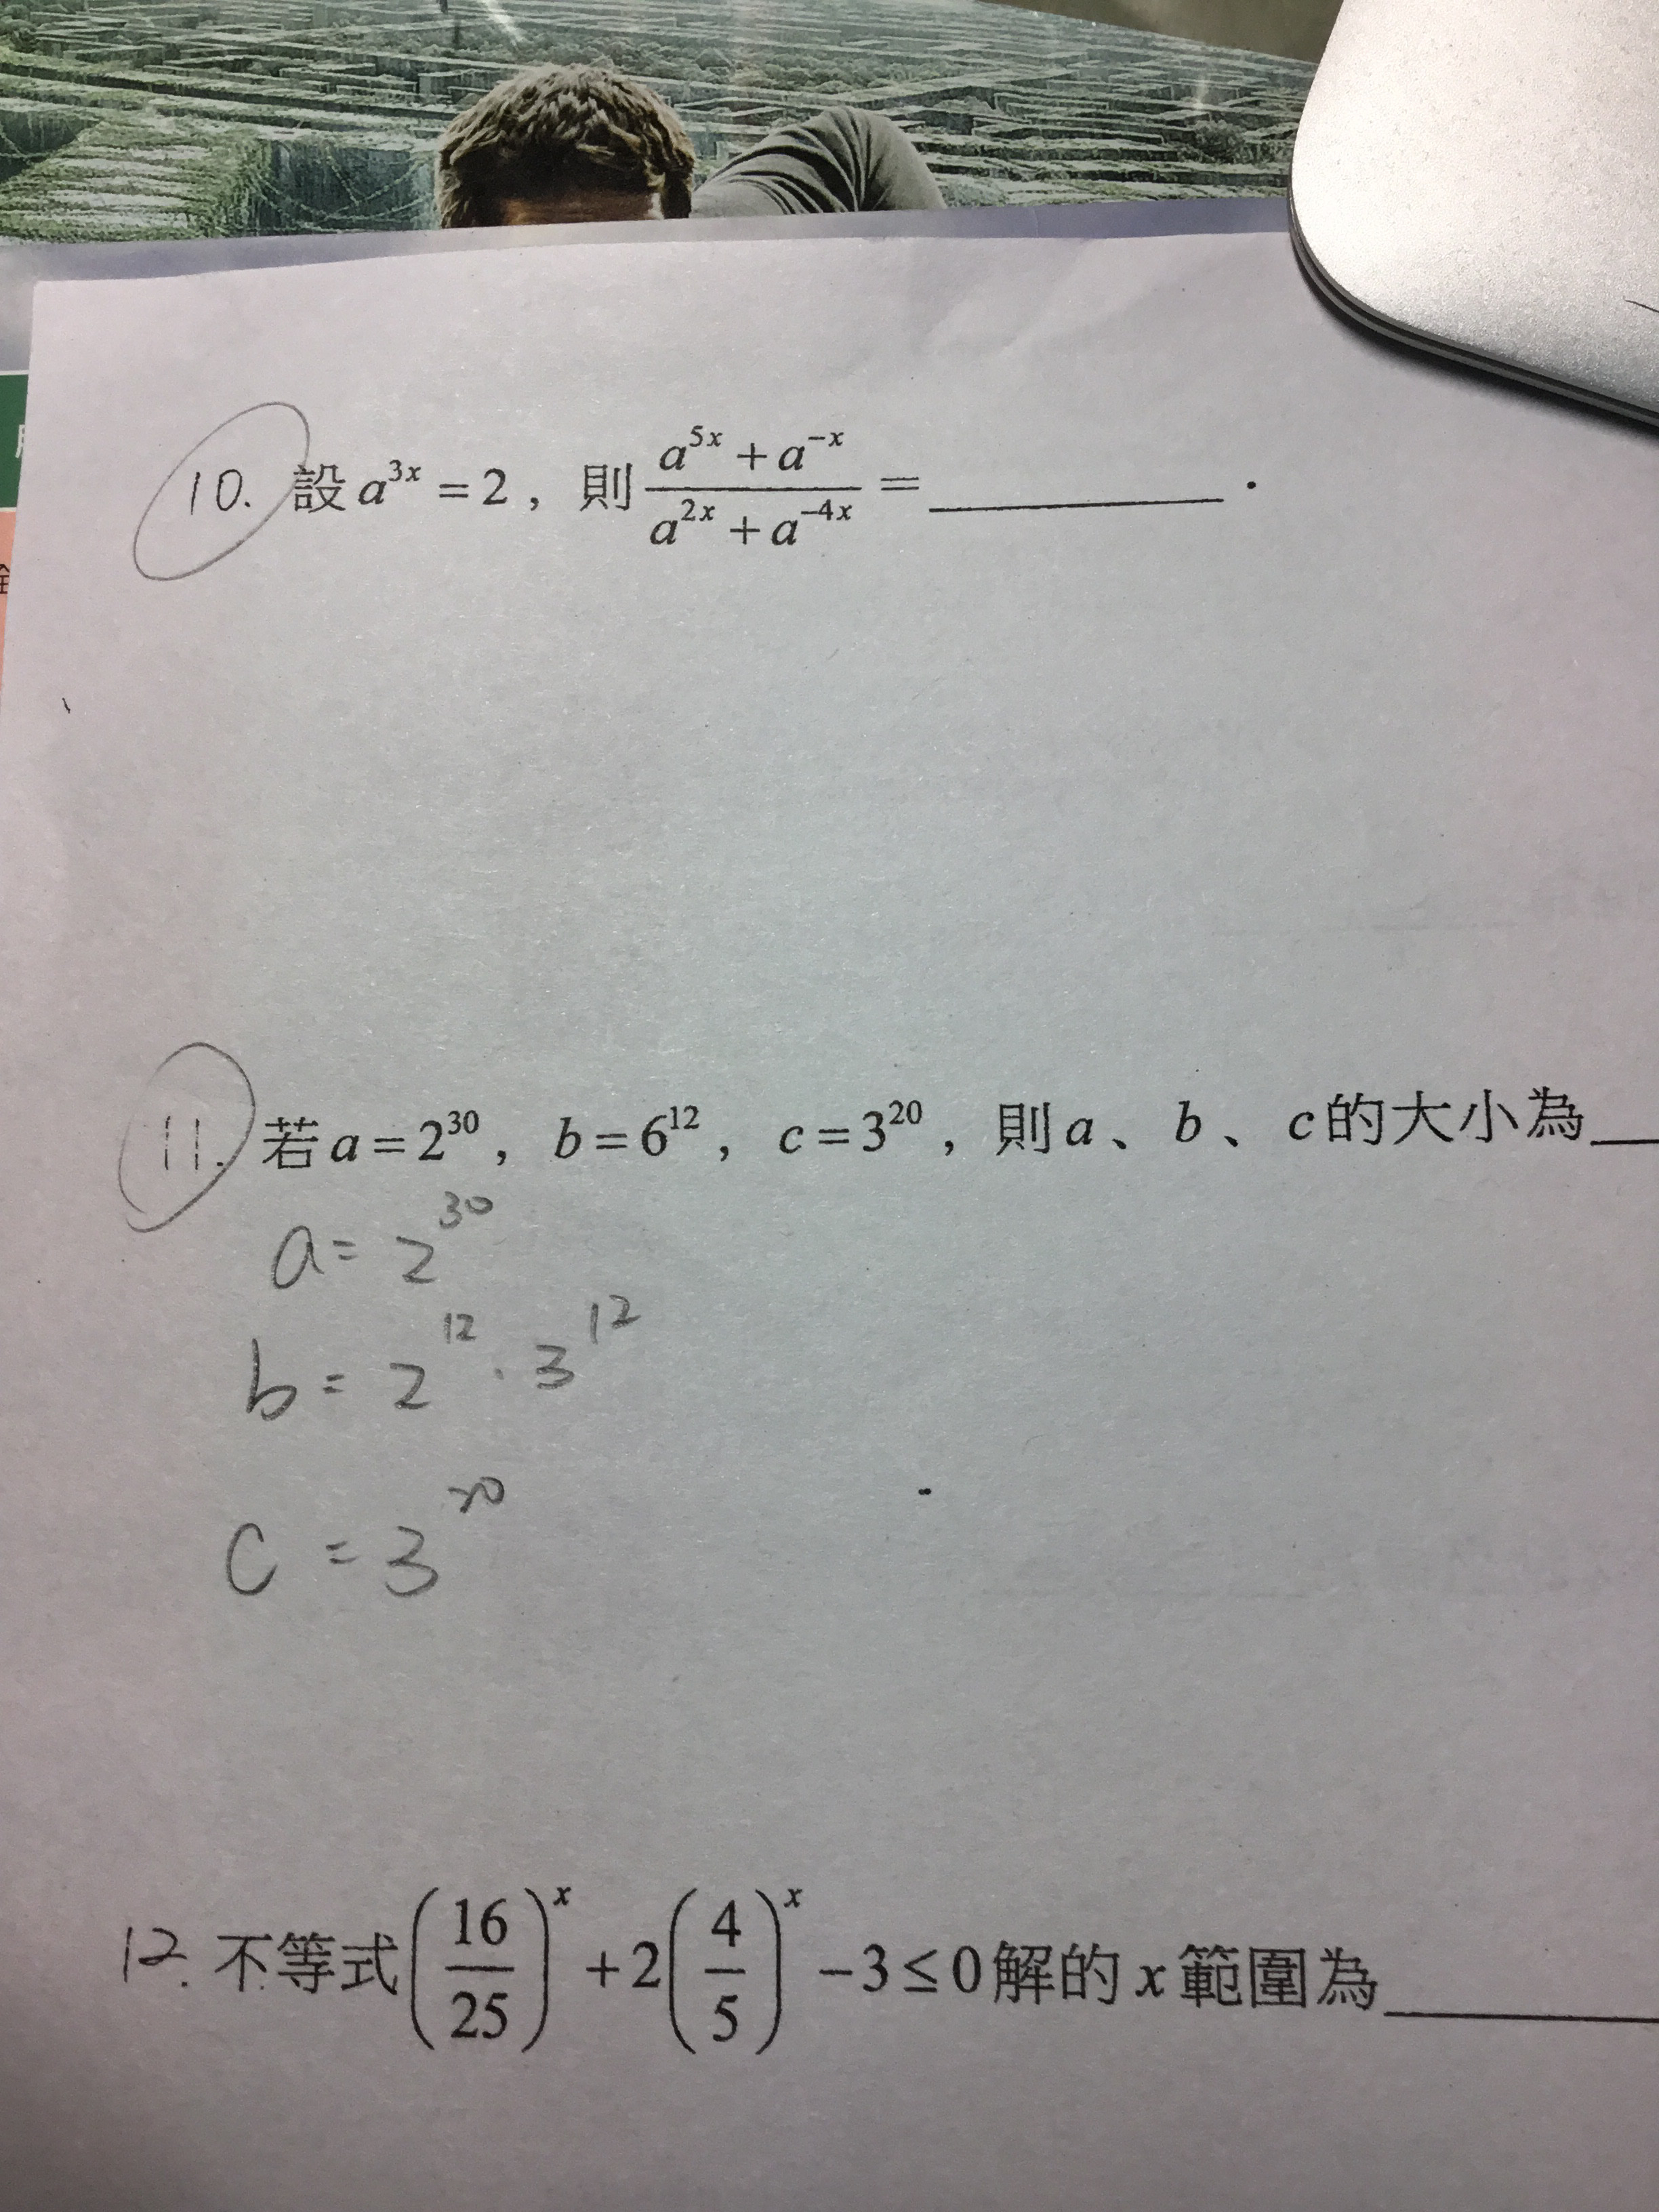 10. 設 a^{3x} = 2 , 則 \frac{a^{5x} + a^{-x}}{a^{2x} + a^{-4x}} = ________ .
11. 若 a = 2^{30} , b = 6^{12} , c = 3^{20} , 則 a 、 b 、 c 的大小為__
a = 2^{30}
b = 2^{12} · 3^{12}
c = 3^{20}
12. 不等式 (\frac{16}{25})^x + 2(\frac{4}{5})^x − 3 ≤ 0 解的 x 範圍為______